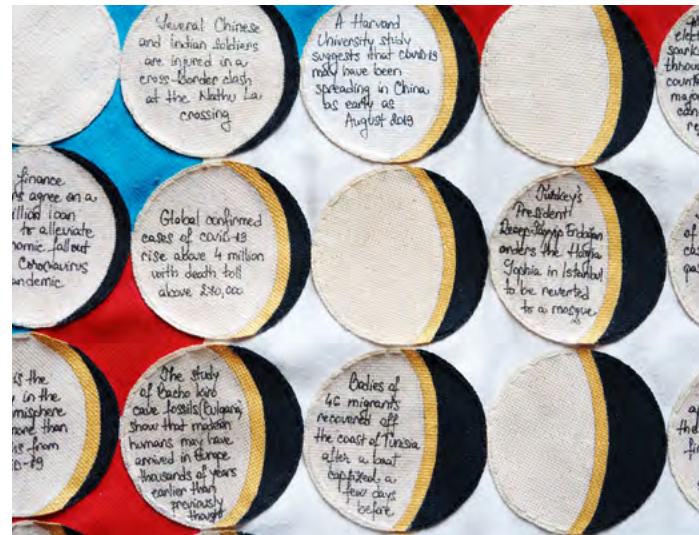 Several Chinese
and indian soldiers
are injured in a
cross-border clash
at the Nathu La
crossing
A Harvard
University study
suggests that covid-19
may have been
spreading in China
as early as
August 2019
elect
spark
through
count
major
can
finance
agree on a
illion loan
to alleviate
nomic fallout
Coronavirus
andemic
Global confirmed
cases of covid-19
rise above 4 million
with death toll
above 280,000
Turkey's
President
Recep Tayyip Erdoğan
orders the Hagia
Sophia in Istanbul
to be reverted
to a mosque
of
cas
is the
in the
misphere
more than
from
D-19
The study
of Bacho kiro
cave fossils (Bulgaria)
show that modern
humans may have
arrived in Europe
thousands of years
earlier than
previously
thought
Bodies of
46 migrants
recovered off
the coast of Tunisia
after a boat
capsized a
few days
before
the